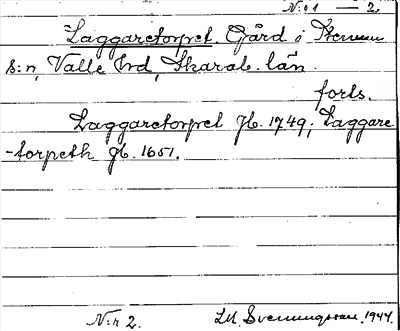 N:o 1 — 2.
Laggaretorpet. Gård i Stenum
s:n, Valle hrd, Skarab. län.
forts.
Laggaretorpet Jb. 1749; Laggare
-torpeth Jb. 1651.
N:r 2. LM. Svenungsson. 1944.